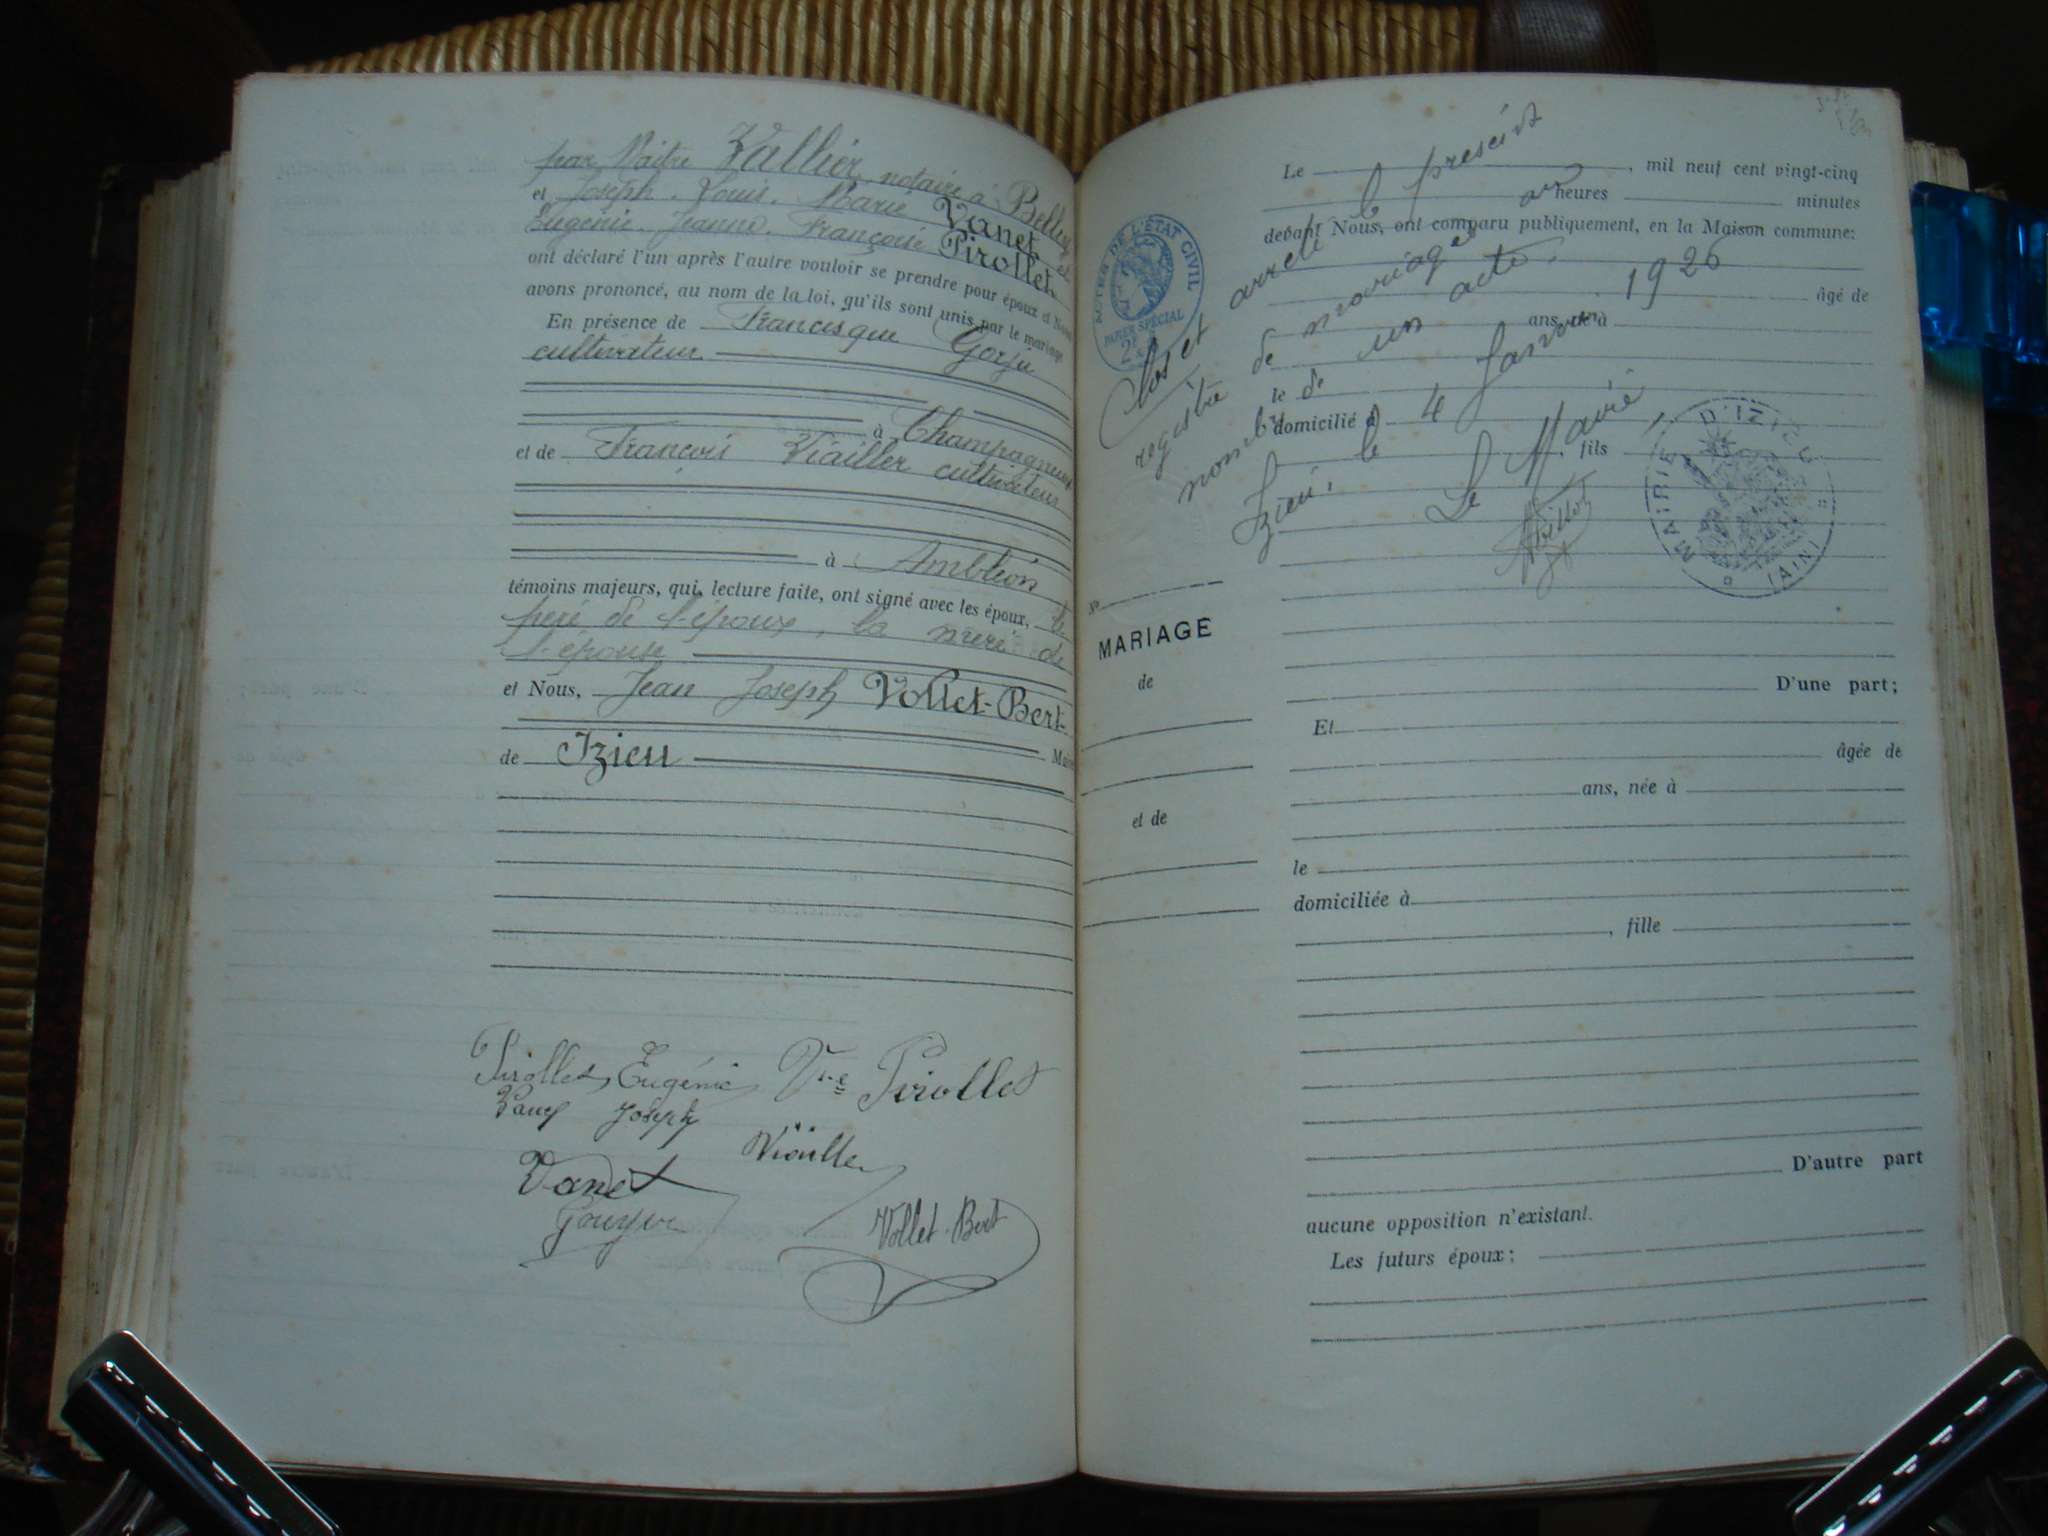 par Maître Vallier, notaire à Belley
et Joseph. Louis. Marie Vanet et
Eugénie. Jeanne. Françoise Pirollet.
ont déclaré l'un après l'autre vouloir se prendre pour époux et Nous
avons prononcé, au nom de la loi, qu'ils sont unis par le mariage
En présence de Francisque Gouju
cultivateur
à Champagneux
et de François Viailler cultivateur
à Ambléon
témoins majeurs, qui, lecture faite, ont signé avec les époux, le
père de l'époux, la mère de
l'épouse
et Nous, Jean Joseph Vollet-Bert
de Izieu Maire
Pirollet Eugénie Vve Pirollet
Vanet Joseph
Viailler
Vanet
Vollet-Bert
Le , mil neuf cent vingt-cinq
heures minutes
devant Nous, ont comparu publiquement, en la Maison commune:
âgé de
ans, né à
le
domicilié à
, fils
ACTES DE L'ÉTAT CIVIL
PAPIER SPÉCIAL
Clos et arrêté le présent
registre de mariages au
nombre de un acte.
Izieu, le 4 Janvier 1926
Le Maire
MAIRIE D'IZIEU
(AIN)
No
MARIAGE
de
et de
D'une part;
Et
âgée de
ans, née à
le
domiciliée à
, fille
D'autre part
aucune opposition n'existant.
Les futurs époux: